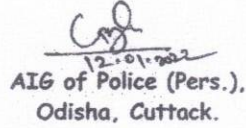 12.01.2022
AIG of Police (Pers.),
Odisha, Cuttack.